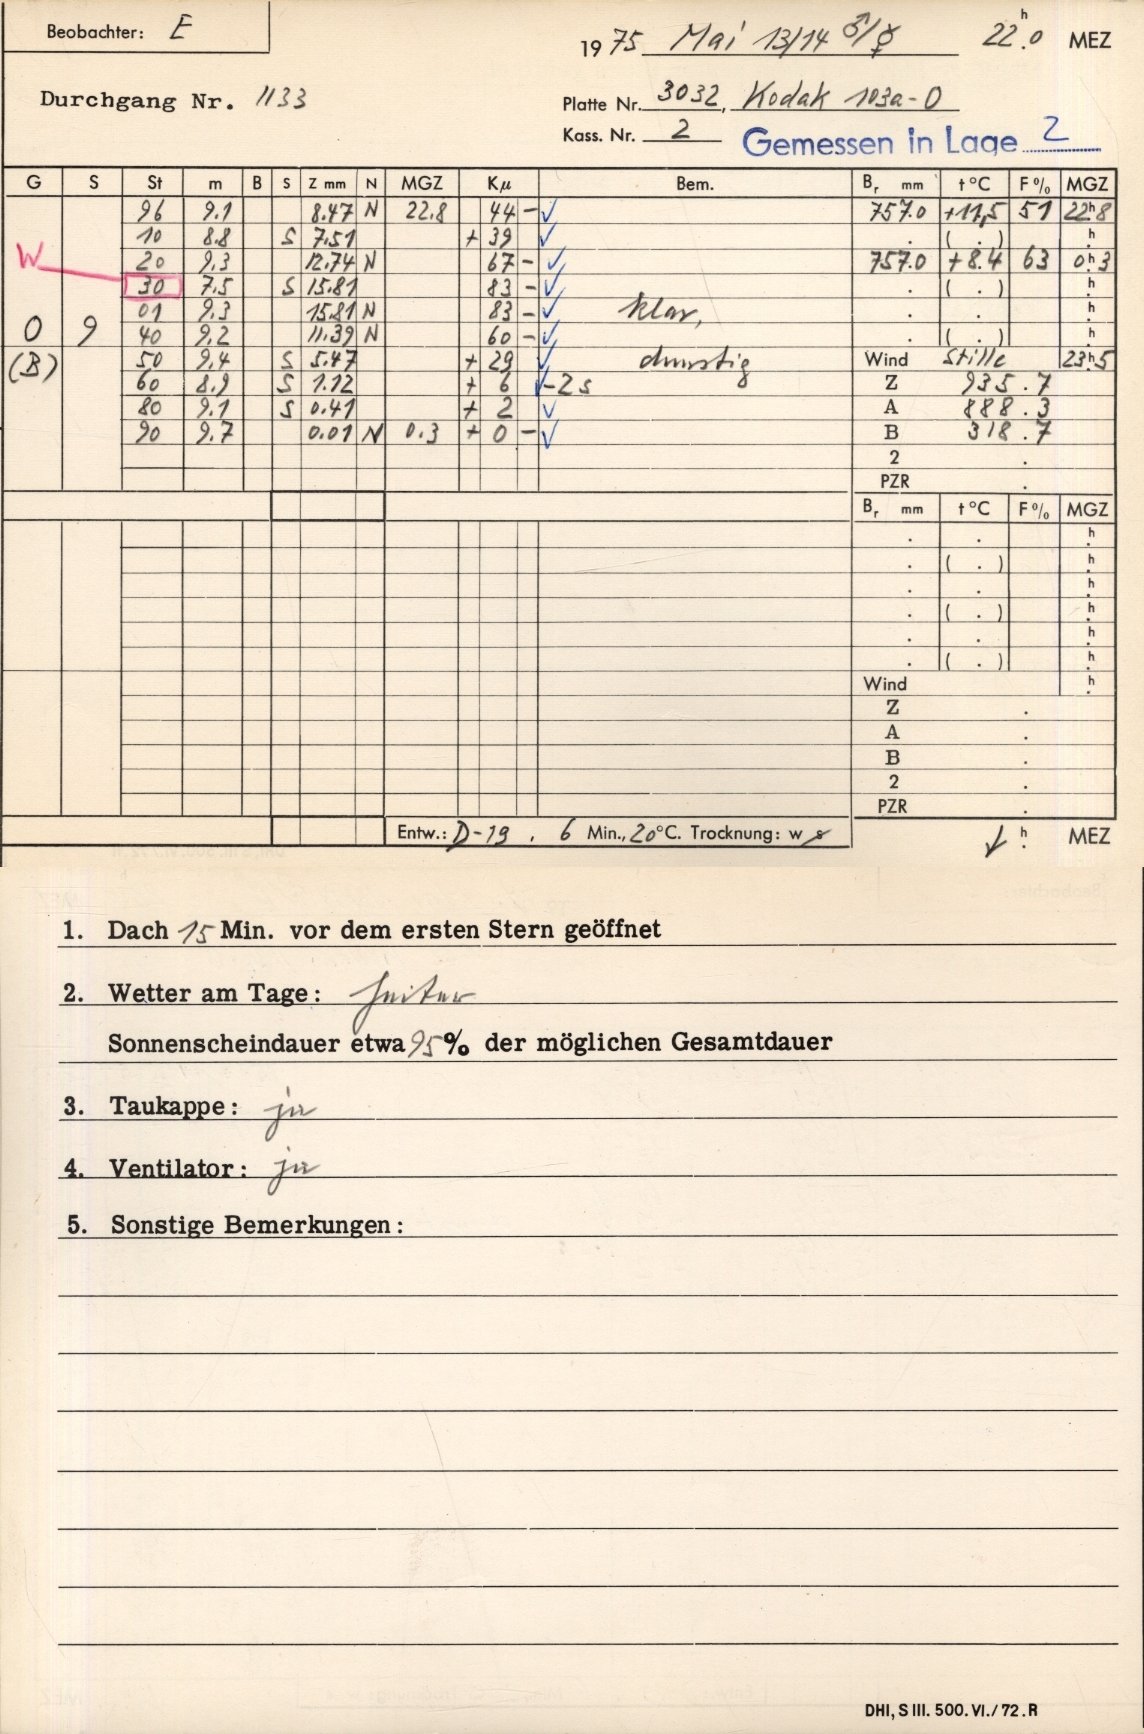 Beobachter: E
1975 Mai 13/14 ♂/☿ 22h.0 MEZ
Durchgang Nr. 1133
Platte Nr. 3032, Kodak 103a-O
Kass. Nr. 2 Gemessen in Lage 2
G S St m B S Z mm N MGZ Kµ Bem. Br mm t °C F % MGZ
96 9.1 8.47 N 22.8 44 - ✓ 757.0 +11,5 51 22h8
10 8.8 S 7.51 + 39 ✓ . ( . ) h.
W 20 9.3 12.74 N 67 - ✓ 757.0 +8.4 63 0h.3
30 7.5 S 15.81 83 - ✓ . ( . ) h.
01 9.3 15.81 N 83 - ✓ klar, . . h.
0 9 40 9.2 11.39 N 60 - ✓ . ( . ) h.
(B) 50 9.4 S 5.47 + 29 ✓ dunstig Wind Stille 23h5
60 8.9 S 1.12 + 6 ✓ -2s Z 935.7
80 9.1 S 0.41 + 2 ✓ A 888.3
90 9.7 0.01 N 0.3 + 0 - ✓ B 318.7
2 .
PZR .
Br mm t °C F % MGZ
. . h.
. ( . ) h.
. . h.
. ( . ) h.
. . h.
. ( . ) h.
Wind h.
Z .
A .
B .
2 .
PZR .
Entw.: D-19 . 6 Min., 20°C. Trocknung: w s ↓ h. MEZ
1. Dach 15 Min. vor dem ersten Stern geöffnet
2. Wetter am Tage: heiter
Sonnenscheindauer etwa 95% der möglichen Gesamtdauer
3. Taukappe: ja
4. Ventilator: ja
5. Sonstige Bemerkungen:
DHI, S III. 500. VI./72. R